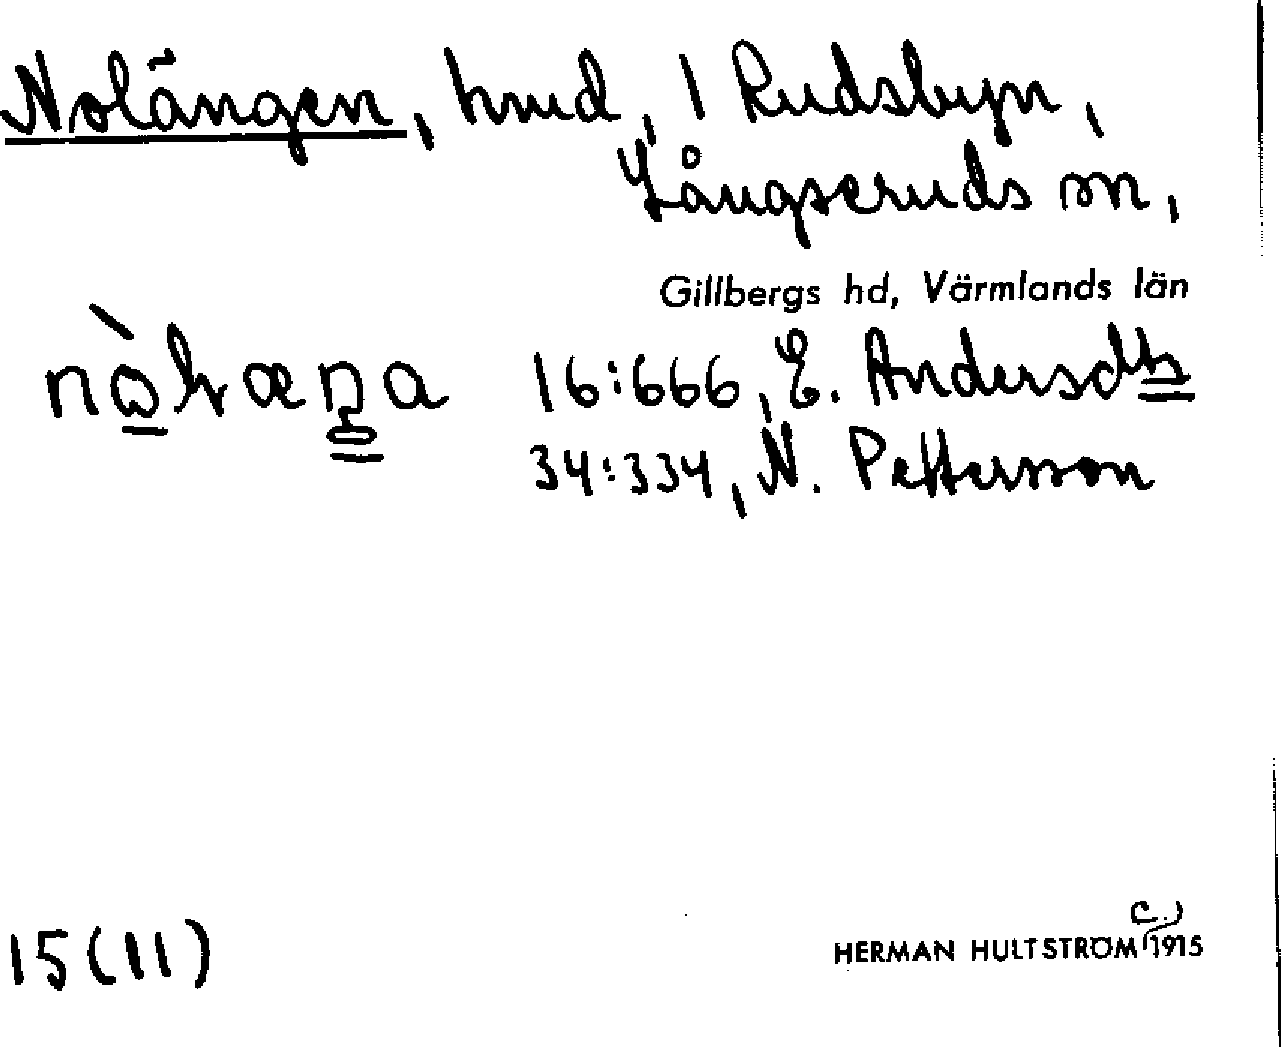 Nolängen, hmd, 1 Rudsbyn,
Långseruds sn,
Gillbergs hd, Värmlands län
16:666, E. Andersdtr
34:334, N. Pettersson
15(11)
HERMAN HULTSTRÖM (c.) 1915